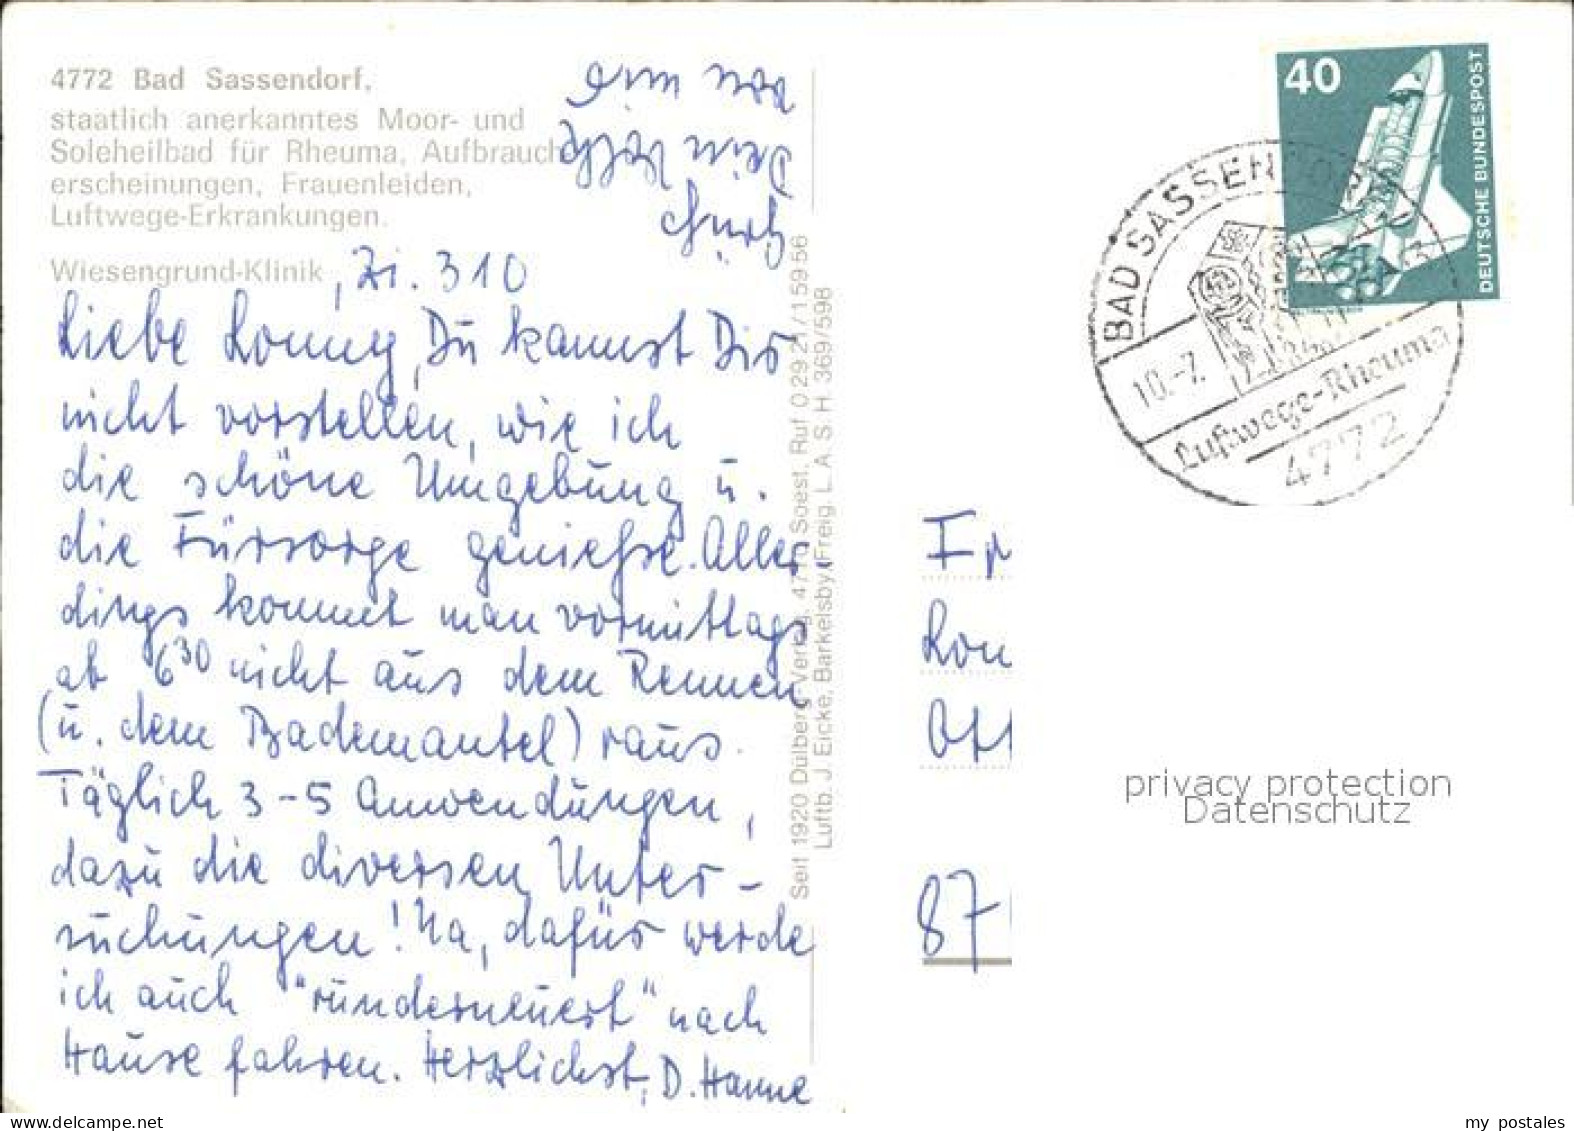 4772 Bad Sassendorf,
staatlich anerkanntes Moor- und
Soleheilbad für Rheuma, Aufbrauch
erscheinungen, Frauenleiden,
Luftwege-Erkrankungen.
Wiesengrund-Klinik, Zi. 310
Liebe Lonny, Du kannst Dir
nicht vorstellen, wie ich
die schöne Umgebung u.
die Fürsorge genieße. Aller
dings kommt man vormittags
ab 6³⁰ nicht aus dem Rennen
(u. dem Bademantel) raus.
Täglich 3-5 Anwendungen,
dazu die diversen Unter-
suchungen! Na, dafür werde
ich auch "runderneuert" nach
Hause fahren. Herzlichst, D. Hanne
von mir
Dein
Grüß
Seit 1920 Dülberg-Verlag. 4770 Soest. Ruf 0 29 21/1 59 56
Luftb. J. Eicke, Barkelsby/Freig. L. A. S. H. 369/598
40
DEUTSCHE BUNDESPOST
BAD SASSENDORF
10.-7.
Luftwege-Rheuma
4772
Fr
Lon
Ott
87
privacy protection
Datenschutz
my postales